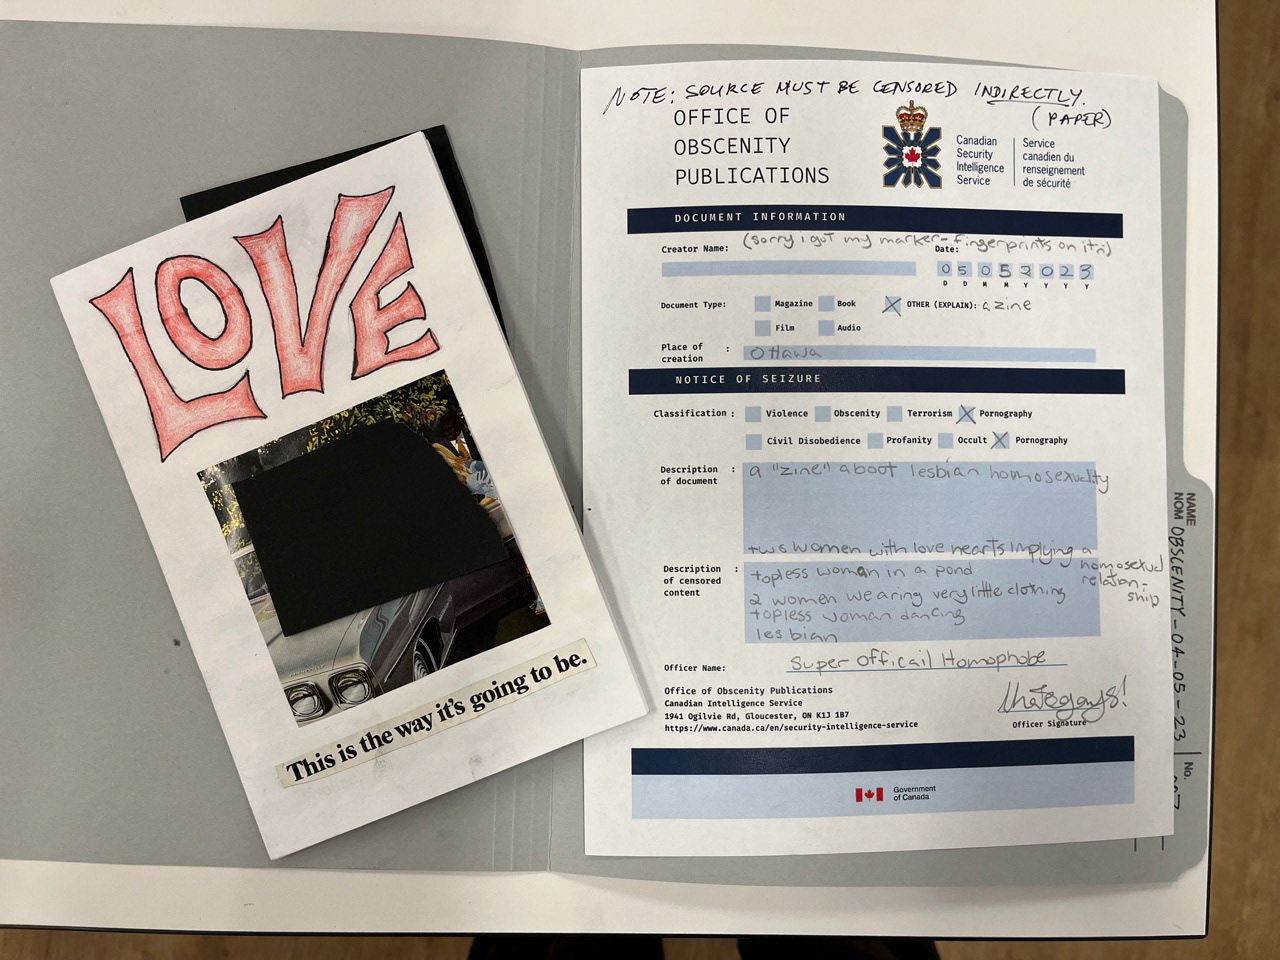 LOVE
This is the way it's going to be.
NOTE: SOURCE MUST BE CENSORED INDIRECTLY.
(PAPER)
OFFICE OF
OBSCENITY
PUBLICATIONS
Canadian
Security
Intelligence
Service
Service
canadien du
renseignement
de sécurité
DOCUMENT INFORMATION
(sorry i got my marker-fingerprints on it :)
Creator Name:
Date:
05052023
D D M M Y Y Y Y
Document Type:
Magazine
Book
OTHER (EXPLAIN): a zine
Film
Audio
Place of
creation :
Ottawa
NOTICE OF SEIZURE
Classification :
Violence
Obscenity
Terrorism
Pornography
Civil Disobedience
Profanity
Occult
Pornography
Description
of document :
a "zine" aboot lesbian homosexuality
two women with love hearts implying a
homosexual
relation-
ship
Description
of censored
content :
topless woman in a pond
2 women wearing very little clothing
topless woman dancing
lesbian
Officer Name:
Super Officail Homophobe
Office of Obscenity Publications
Canadian Intelligence Service
1941 Ogilvie Rd, Gloucester, ON K1J 1B7
https://www.canada.ca/en/security-intelligence-service
Ihategays!
Officer Signature
Government
of Canada
NAME
NOM OBSCENITY-04-05-23
No.